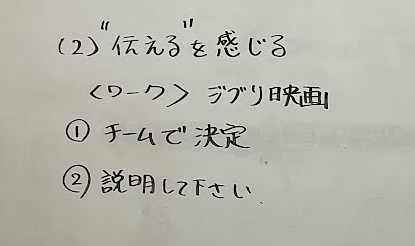 (2) "伝える" を感じる
<ワーク> ジブリ映画
① チームで決定
② 説明して下さい